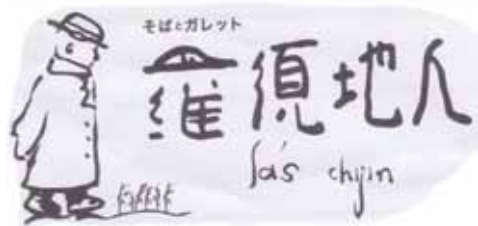 そばとガレット
羅須地人
las chijin